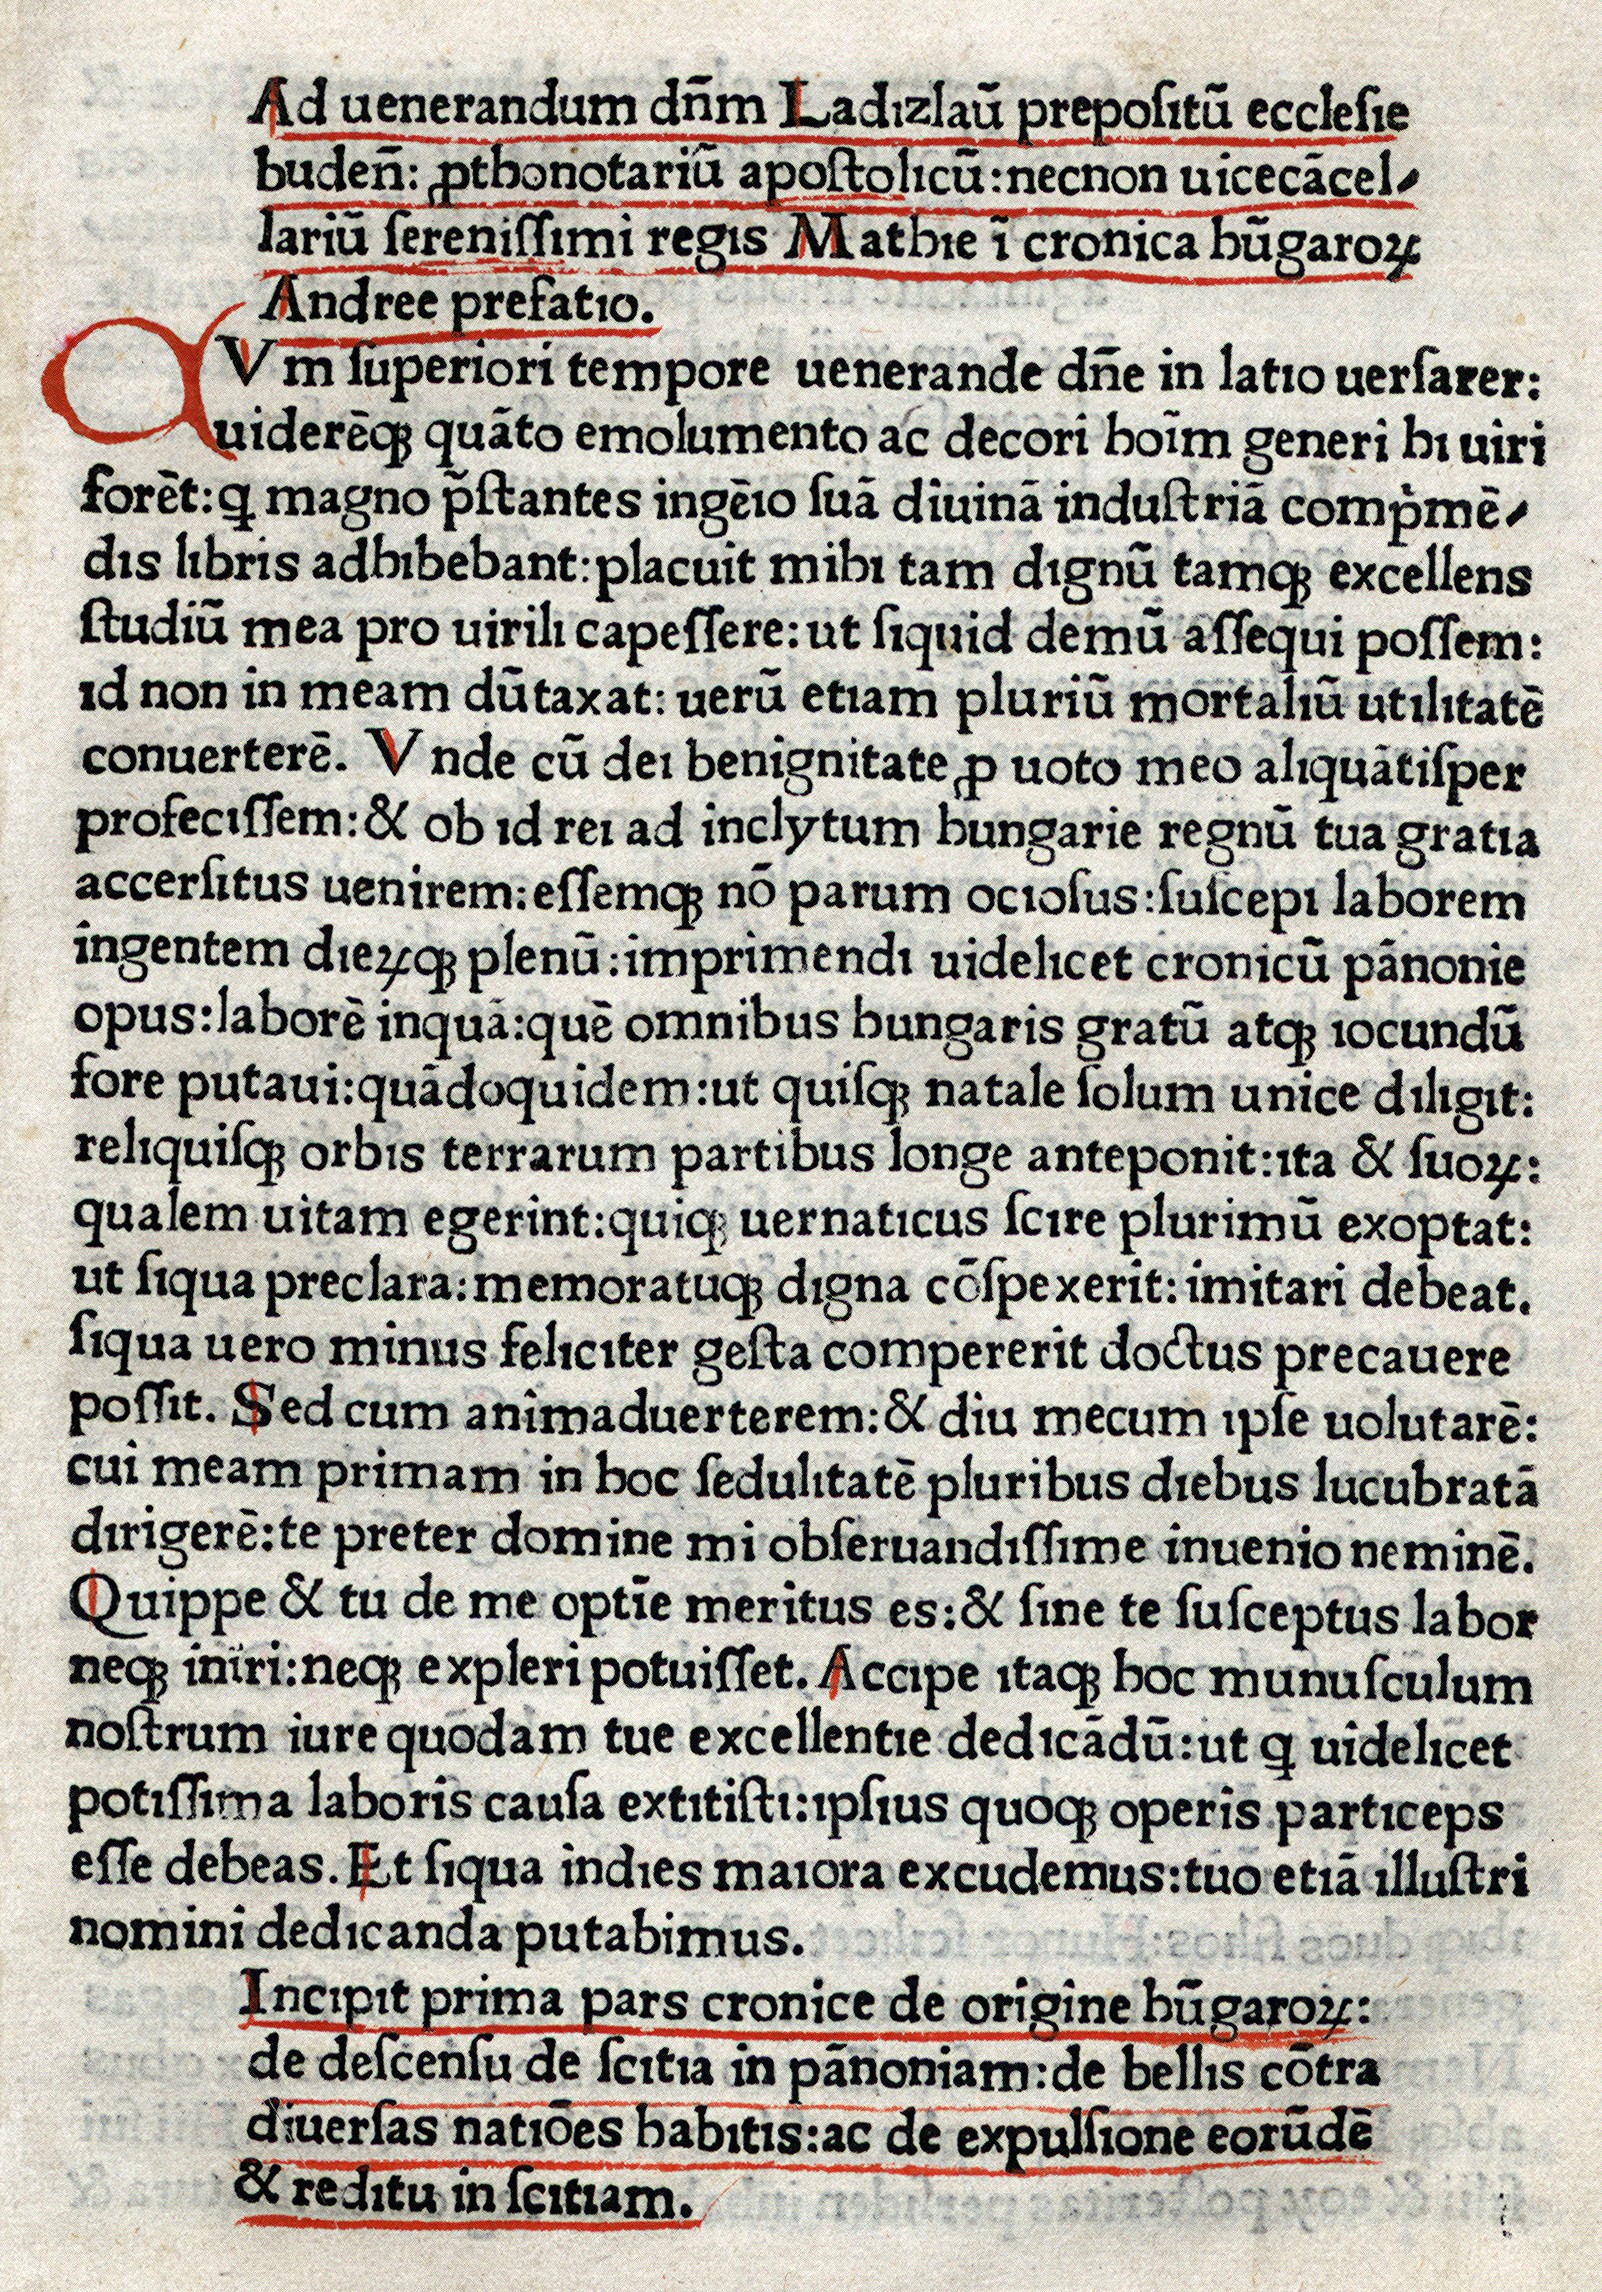 Ad uenerandum dn̄m Ladizlaū prepoſitū eccleſie
buden̄: ꝓthonotariū apoſtolicū: necnon uicecācel⸗
lariū ſereniſſimi regis Mathie ī cronica hūgaroꝝ
Andree prefatio.
CVm ſuperiori tempore uenerande dn̄e in latio uerſarer:
uiderēqꝫ quāto emolumento ac decori hoīm generi hi uiri
forēt: ꝗ magno p̄ſtantes ingēio ſuā diuinā induſtriā comp̍mē⸗
dis libris adhibebant: placuit mihi tam dignū tamqꝫ excellens
ſtudiū mea pro uirili capeſſere: ut ſiquid demū aſſequi poſſem:
id non in meam dūtaxat: uerū etiam pluriū mortaliū utilitatē
conuerterē. Vnde cū dei benignitate ꝓ uoto meo aliquātiſper
profeciſſem: & ob id rei ad inclytum hungarie regnū tua gratia
accerſitus uenirem: eſſemqꝫ nō parum ocioſus: ſuſcepi laborem
ingentem dieꝝqꝫ plenū: imprimendi uidelicet cronicū pānonie
opus: laborē inquā: quē omnibus hungaris gratū atqꝫ iocundū
fore putaui: quādoquidem: ut quiſqꝫ natale ſolum unice diligit:
reliquiſqꝫ orbis terrarum partibus longe anteponit: ita & ſuoꝝ:
qualem uitam egerint: quiqꝫ uernaticus ſcire plurimū exoptat:
ut ſiqua preclara: memoratuqꝫ digna cōſpexerit: imitari debeat.
ſiqua uero minus feliciter geſta compererit doctus precauere
poſſit. Sed cum animaduerterem: & diu mecum ipſe uolutarē:
cui meam primam in hoc ſedulitatē pluribus diebus lucubratā
dirigerē: te preter domine mi obſeruandiſſime inuenio neminē.
Quippe & tu de me optīe meritus es: & ſine te ſuſceptus labor
neqꝫ iniri: neqꝫ expleri potuiſſet. Accipe itaqꝫ hoc munuſculum
noſtrum iure quodam tue excellentie dedicādū: ut ꝗ uidelicet
potiſſima laboris cauſa extitiſti: ipſius quoqꝫ operis particeps
eſſe debeas. Et ſiqua indies maiora excudemus: tuo etiā illuſtri
nomini dedicanda putabimus.
Incipit prima pars cronice de origine hūgaroꝝ:
de deſcenſu de ſcitia in pānoniam: de bellis cōtra
diuerſas natiōes habitis: ac de expulſione eorūdē
& reditu in ſcitiam.